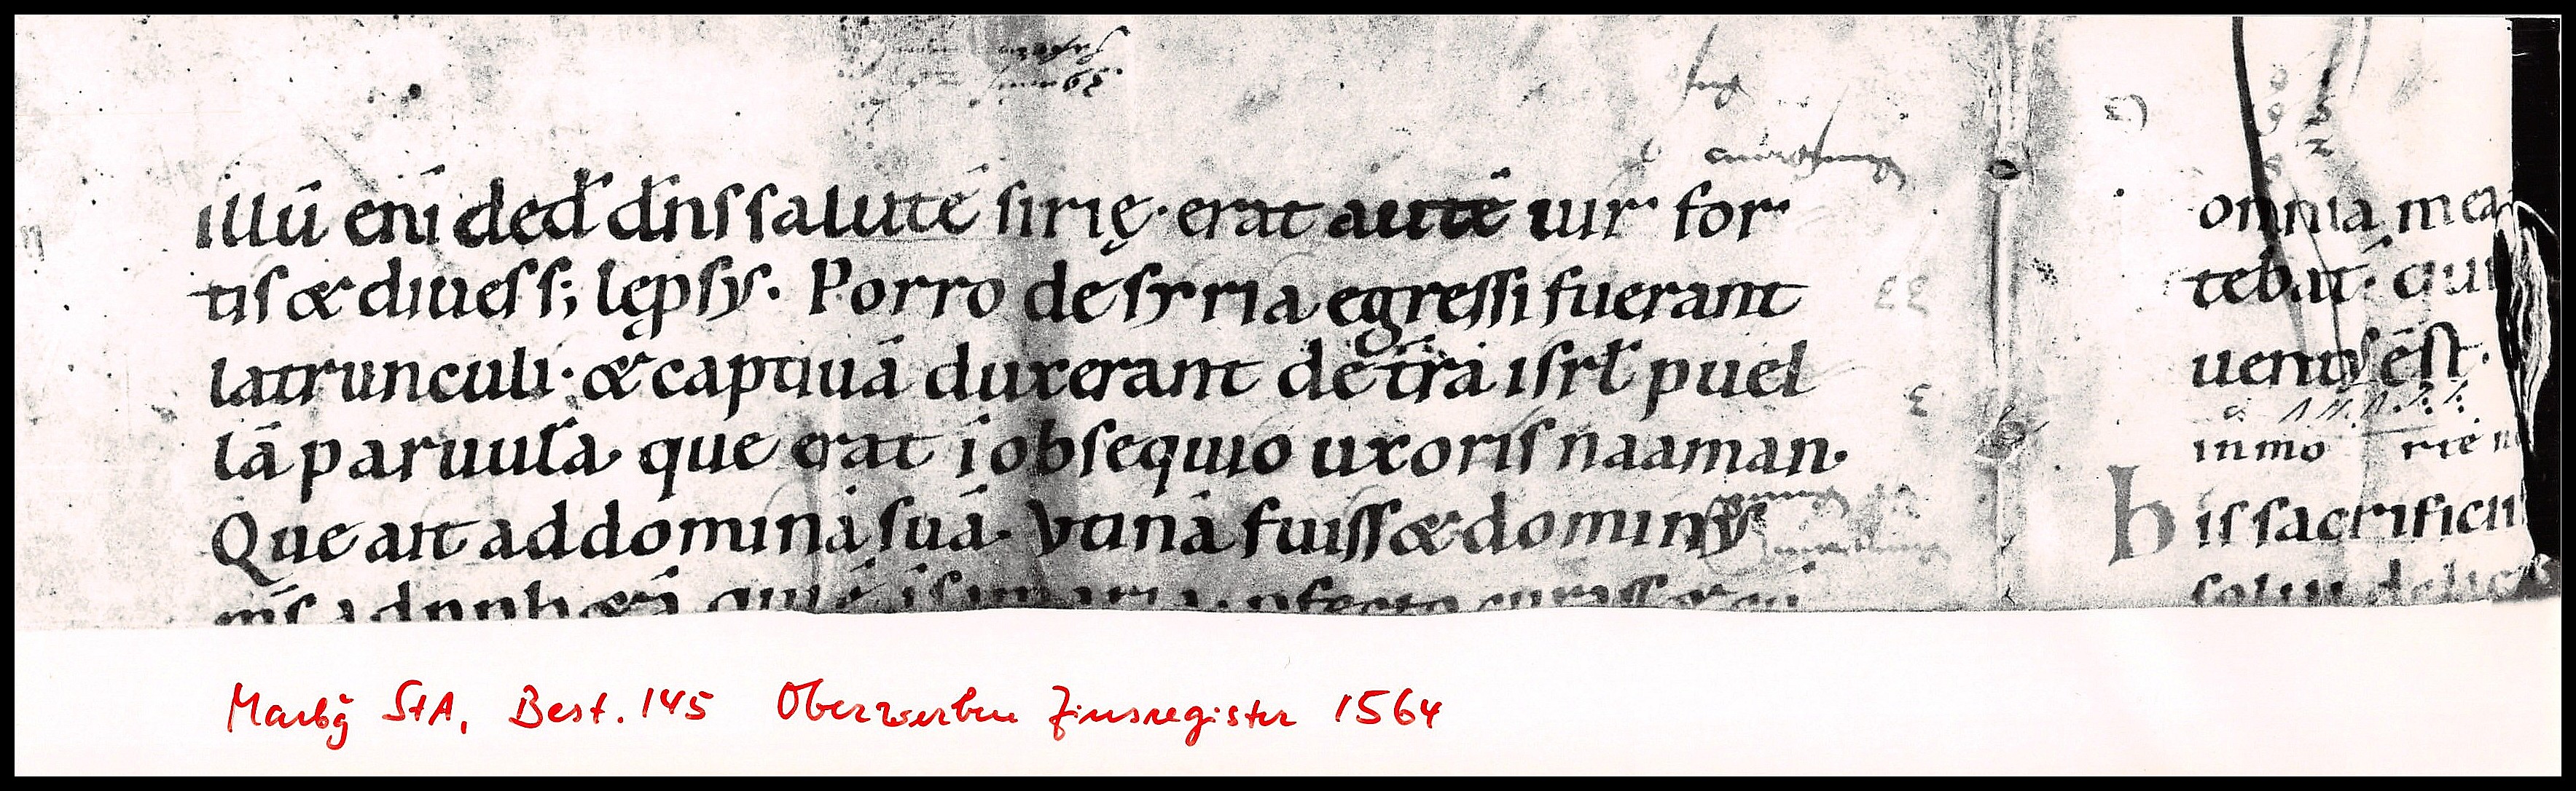 illū enī ded̄ dn̄s salutē sirię· erat autē uir for
tis & diues s; lepsꝰ. Porro de syria egressi fuerant
latrunculi· & captiuā duxerant de t̄ra isrl̄ puel
lā paruula que erat ī obsequio uxoris naaman·
Que ait ad dominā suā· Vtinā fuiss& dominꝰ
omnia mea
tebat̄· qui
uenis ē st·
in mo rie
his sacrificii
Marbg StA, Best. 145 Oberwerben Zinsregister 1564